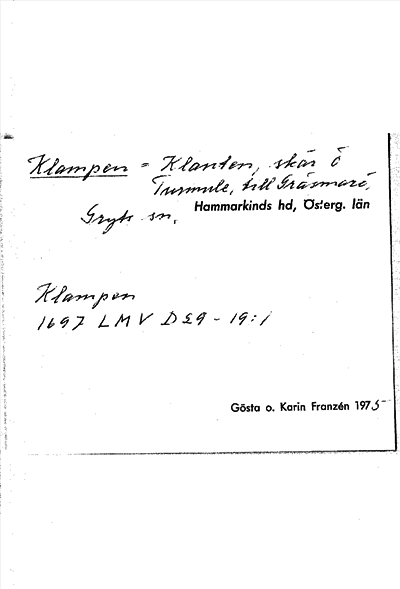 Klampen = Klanten, skär ö
Turmule, till Gräsmarö,
Gryts sn,
Hammarkinds hd, Österg. län
Klampen
1697 LMV D59-19:1
Gösta o. Karin Franzén 1975